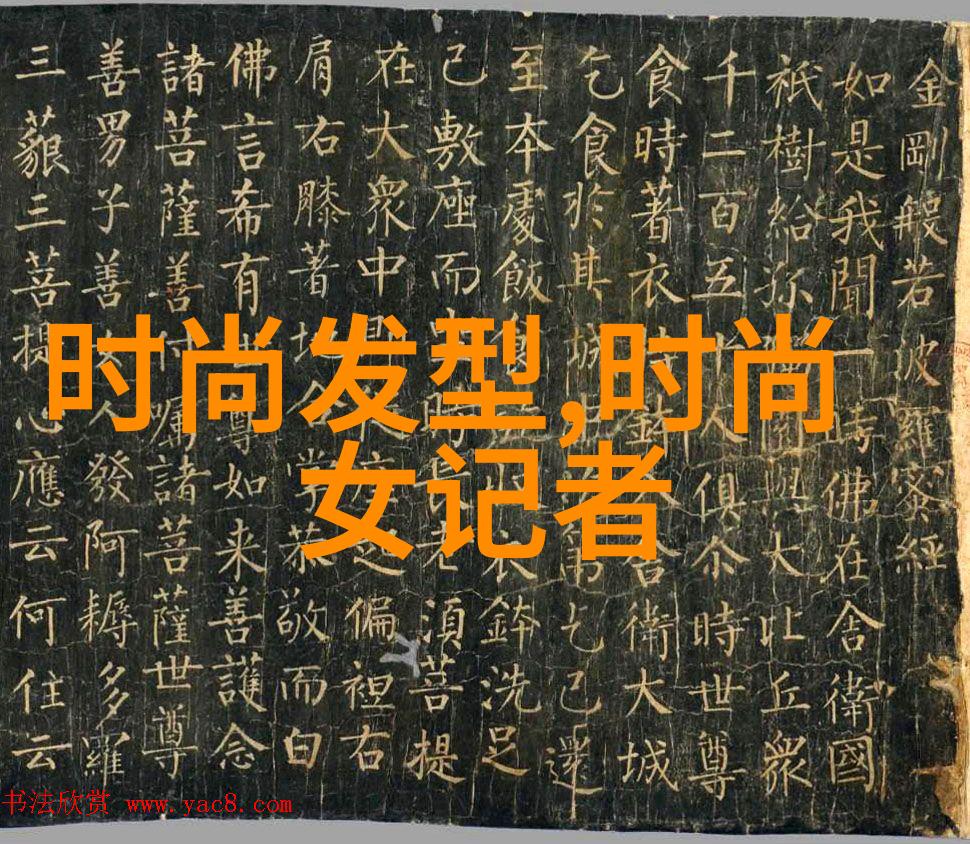 金剛般若波羅蜜經
如是我聞一時佛在舍衛國
祇樹給孤獨園與大比丘衆
千二百五十人俱尒時世尊
食時著衣持鉢入舍衛大城
乞食於其城中次第乞已還
至本處飯食訖收衣鉢洗足
已敷座而坐時長老須菩提
在大衆中即從座起偏袒右
肩右膝著地合掌恭敬而白
佛言希有世尊如来善護念
諸菩薩善付囑諸菩薩世尊
善男子善女人發阿耨多羅
三藐三菩提心應云何住云
时尚发型,时尚
女记者
书法欣赏 www.yac8.com